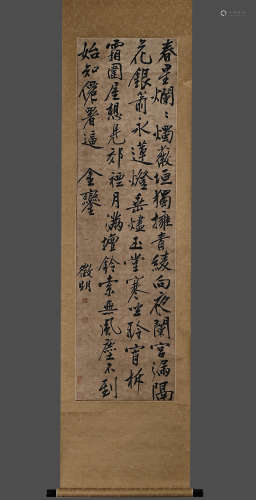 春星爛〻燭薇垣獨擁青綾向夜闌宮漏隔
花銀箭永蓮燈垂燼玉堂寒坐聆宵柝
霜圍屋想見郊禋月滿壇鈴索無風塵不到
始知儤署逼金鑾
徵明